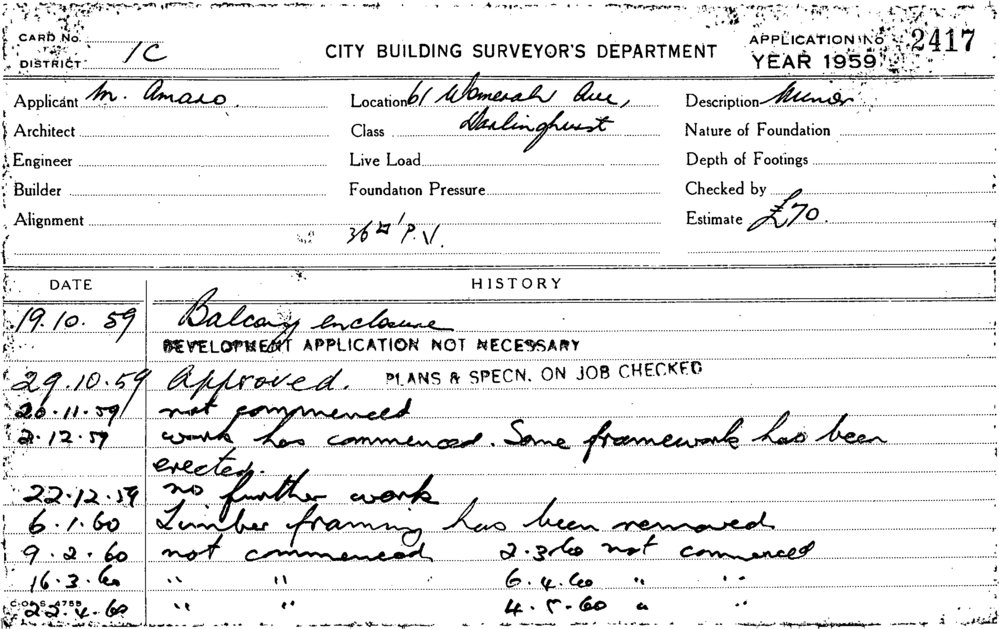 CARD No.
DISTRICT 1C
CITY BUILDING SURVEYOR'S DEPARTMENT
APPLICATION No 2417
YEAR 1959
Applicant M. Amaro.
Location 61 Womerah Ave,
Description Minor
Architect
Class Darlinghurst
Nature of Foundation
Engineer
Live Load
Depth of Footings
Builder
Foundation Pressure
Checked by
Alignment
Estimate £70.
P.V.
DATE HISTORY
19.10.59 Balcony enclosure
DEVELOPMENT APPLICATION NOT NECESSARY
29.10.59 Approved. PLANS & SPECN. ON JOB CHECKED
20.11.59 not commenced
2.12.59 work has commenced. Some framework has been
erected.
22.12.59 no further work
6.1.60 Timber framing has been removed
9.2.60 not commenced 2.3.60 not commenced
16.3.60 " " 6.4.60 " "
22.4.60 " " 4.5.60 " "